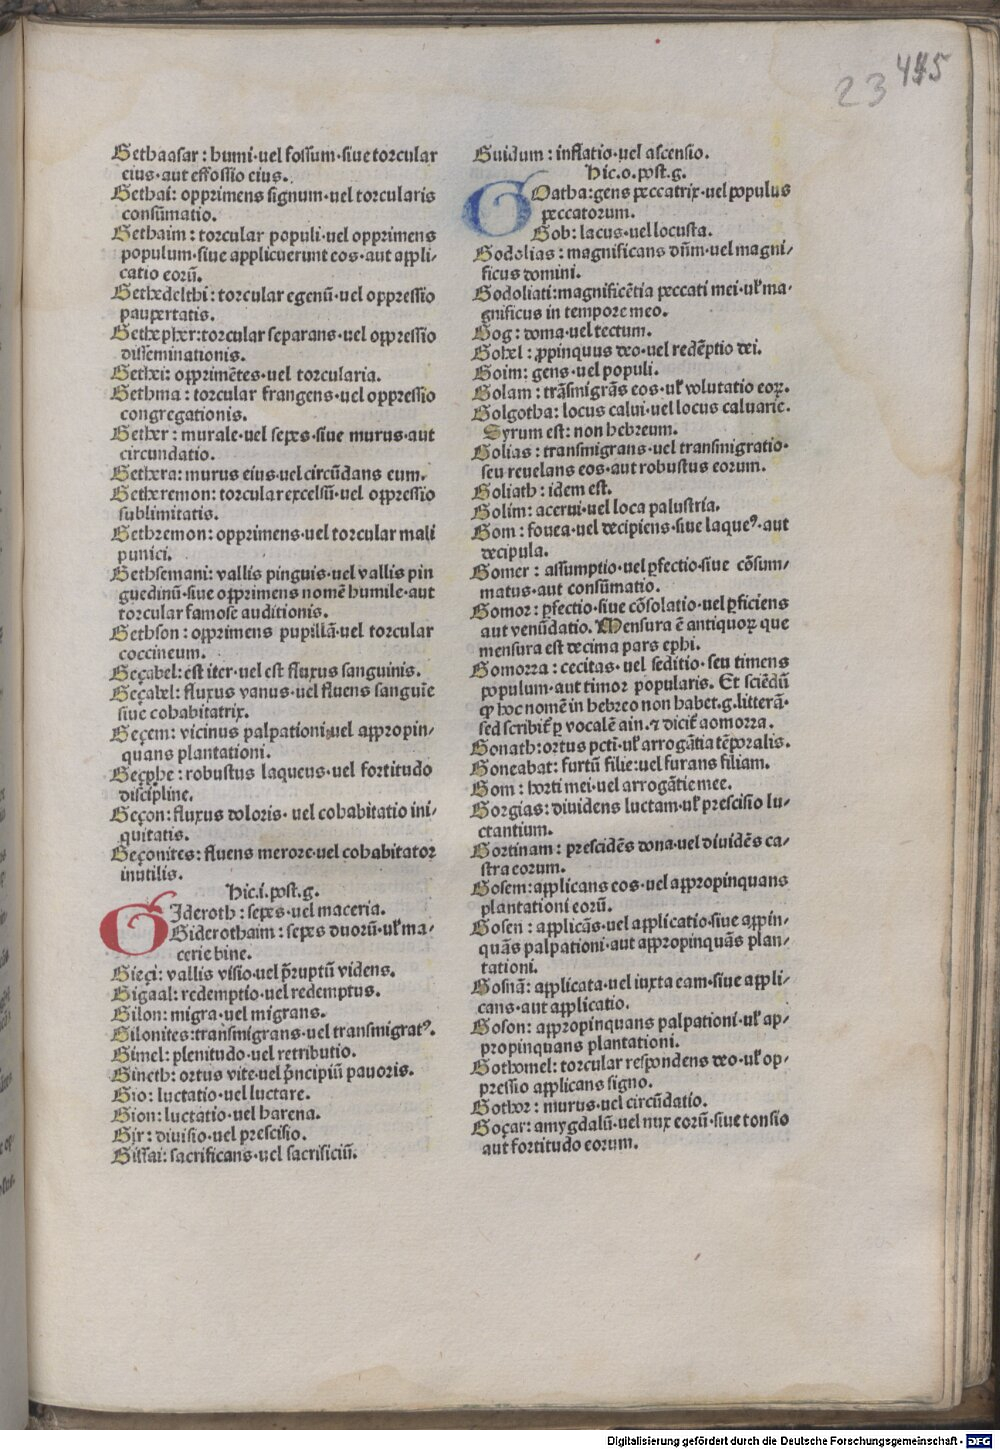 23 445
Gethaasar: humi·uel fossum·siue torcular
eius·aut effossio eius.
Gethai: opprimens signum·uel torcularis
consūmatio.
Gethaim: torcular populi·uel opprimens
populum·siue applicuerunt eos·aut appli/
catio eorū.
Gethedelthi: torcular egenū·uel oppressio
paupertatis.
Gethepher: torcular separans·uel oppressio
disseminationis.
Gethei: opprimētes·uel torcularia.
Gethma: torcular frangens·uel oppressio
congregationis.
Gether: murale·uel sepes·siue murus·aut
circundatio.
Gethera: murus eius·uel circūdans eum.
Getheremon: torcular excelsū·uel oppressio
sublimitatis.
Gethremon: opprimens·uel torcular mali
punici.
Gethsemani: vallis pinguis·uel vallis pin
guedinū·siue opprimens nomē humile·aut
torcular famose auditionis.
Gethson: opprimens pupillā·uel torcular
coccineum.
Geçabel: est iter·uel est fluxus sanguinis.
Geçabel: fluxus vanus·uel fluens sanguīe
siue cohabitatrix.
Geçem: vicinus palpationi·uel appropin/
quans plantationi.
Geçphe: robustus laqueus·uel fortitudo
discipline.
Geçon: fluxus doloris· uel cohabitatio ini/
quitatis.
Geçonites: fluens merore·uel cohabitator
inutilis.
Hic.i.post.g.
GIderoth: sepes·uel maceria.
Giderothaim: sepes duorū·uł ma/
cerie bine.
Gieçi: vallis visio·uel p̄ruptū videns.
Gigaal: redemptio·uel redemptus.
Gilon: migra·uel migrans.
Gilonites: transmigrans·uel transmigratꝰ.
Gimel: plenitudo·uel retributio.
Gineth: ortus vite·uel p̄ncipiū pauoris.
Gio: luctatio·uel luctare.
Gion: luctatio·uel harena.
Gir: diuisio·uel prescisio.
Gissai: sacrificans·uel sacrificiū.
Guidum: inflatio·uel ascensio.
Hic.o.post.g.
GOatha: gens peccatrix·uel populus
peccatorum.
Gob: lacus·uel locusta.
Godolias: magnificans dn̄m·uel magni/
ficus domini.
Godoliati: magnificētia peccati mei·uł ma/
gnificus in tempore meo.
Gog: doma·uel tectum.
Gohel: ꝓpinquus deo·uel redēptio dei.
Goim: gens·uel populi.
Golam: trāsmigrās eos·uł volutatio eoꝝ.
Golgotha: locus calui·uel locus caluarie.
Syrum est: non hebreum.
Golias: transmigrans·uel transmigratio·
seu reuelans eos·aut robustus eorum.
Goliath: idem est.
Golim: acerui·uel loca palustria.
Gom: fouea·uel decipiens·siue laqueꝰ·aut
decipula.
Gomer: assumptio·uel ꝑfectio·siue cōsum/
matus·aut consūmatio.
Gomor: ꝑfectio·siue cōsolatio·uel ꝑficiens
aut venūdatio. Mensura ē antiquoꝝ que
mensura est decima pars ephi.
Gomorra: cecitas·uel seditio·seu timens
populum·aut timor popularis. Et sciēdū
ꝙ hoc nomē in hebreo non habet.g.litterā·
sed scribit̄ p vocalē ain.⁊ dicit̄ aomorra.
Gonath: ortus pcti·uł arrogātia tēporalis.
Goneabat: furtū filie: uel furans filiam.
Gom: horti mei·uel arrogātie mee.
Gorgias: diuidens luctam·uł prescisio lu/
ctantium.
Gortinam: prescidēs dona·uel diuidēs ca/
stra eorum.
Gosem: applicans eos·uel appropinquans
plantationi eorū.
Gosen: applicās·uel applicatio·siue appin/
quās palpationi·aut appropinquās plan/
tationi.
Gosnā: applicata·uel iuxta eam·siue appli/
cans·aut applicatio.
Goson: appropinquans palpationi·uł ap/
propinquans plantationi.
Gothomel: torcular respondens deo·uł op/
pressio applicans signo.
Gothor: murus·uel circūdatio.
Goçar: amygdalū·uel nux eorū·siue tonsio
aut fortitudo eorum.
Digitalisierung gefördert durch die Deutsche Forschungsgemeinschaft - DFG